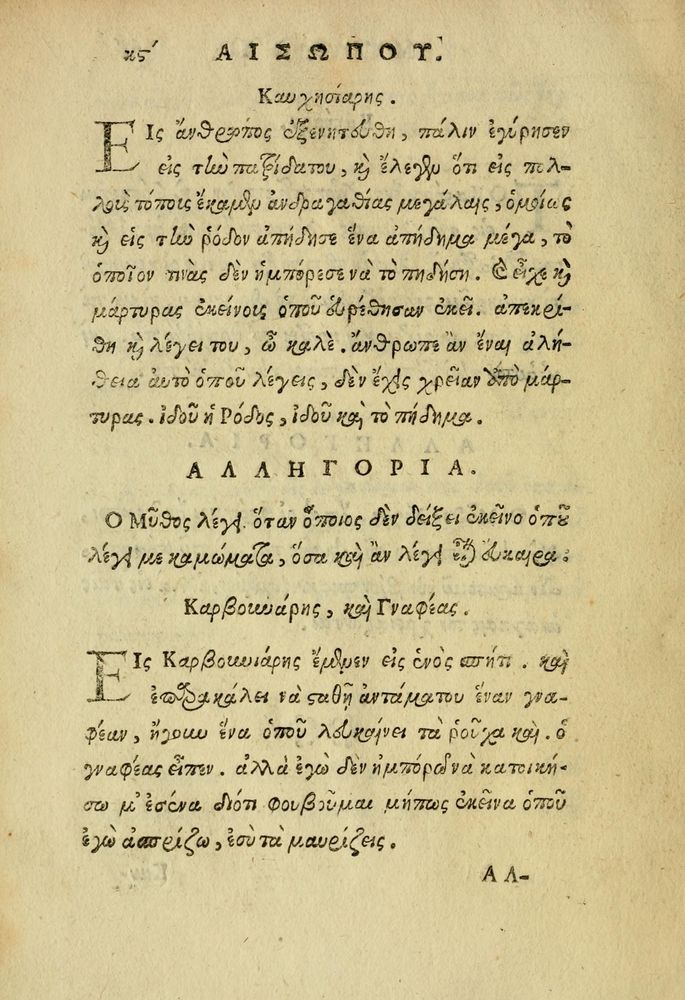 κϛ´ ΑΙΣΩΠΟΥ.
Καυχησιάρης.
ΕΙς ἄνθρωπος ἐξενητεύθη, πάλιν ἐγύρησεν
εἰς τὴν παξίδατου, καὶ ἔλεγεν ὅτι εἰς πολ-
λοὺς τόποις ἔκαμεν ἀνδραγαθίας μεγάλαις, ὁμοίως
καὶ εἰς τὴν ῥόδον ἀπήδησε ἕνα ἀπήδημα μέγα, τὸ
ὁποῖον τινὰς δὲν ἠμπόρεσε νὰ τὸ πηδήση. Ὁ εἶχε καὶ
μάρτυρας ἐκείνοις ὁποῦ εὑρέθησαν ἐκεῖ. ἀπεκρί-
θη καὶ λέγει του, ὦ καλὲ. ἄνθρωπε ἂν ἔναι ἀλή-
θεια αὐτὸ ὁποῦ λέγεις, δὲν ἔχεις χρείαν ἀπὸ μάρ-
τυρας. ἰδοῦ ἡ Ρόδος, ἰδοῦ καὶ τὸ πήδημα.
ΑΛΛΗΓΟΡΙΑ.
Ο Μῦθος λέγει ὅταν ὅποιος δὲν δείξει ἐκεῖνο ὁποῦ
λέγει με καμώματα, ὅσα καὶ ἂν λέγει εἶναι εὔκαιρα.
Καρβουνάρης, καὶ Γναφέας.
ΕΙς Καρβουνιάρης ἔμενεν εἰς ἑνὸς σπήτι. καὶ
ἐπαρακάλει νὰ σταθῆ ἀντάματου ἕναν γνα-
φέαν, ἤγουν ἕνα ὁποῦ λευκαίνει τὰ ῥοῦχα καὶ. ὁ
γναφέας εἶπεν. ἀλλὰ ἐγὼ δὲν ἠμπόρω νὰ κατοική-
σω μ' ἐσένα διότι φουβοῦμαι μήπως ἐκεῖνα ὁποῦ
ἐγὼ ἀσπρίζω, ἐσὺ τὰ μαυρίζεις.
ΑΛ-